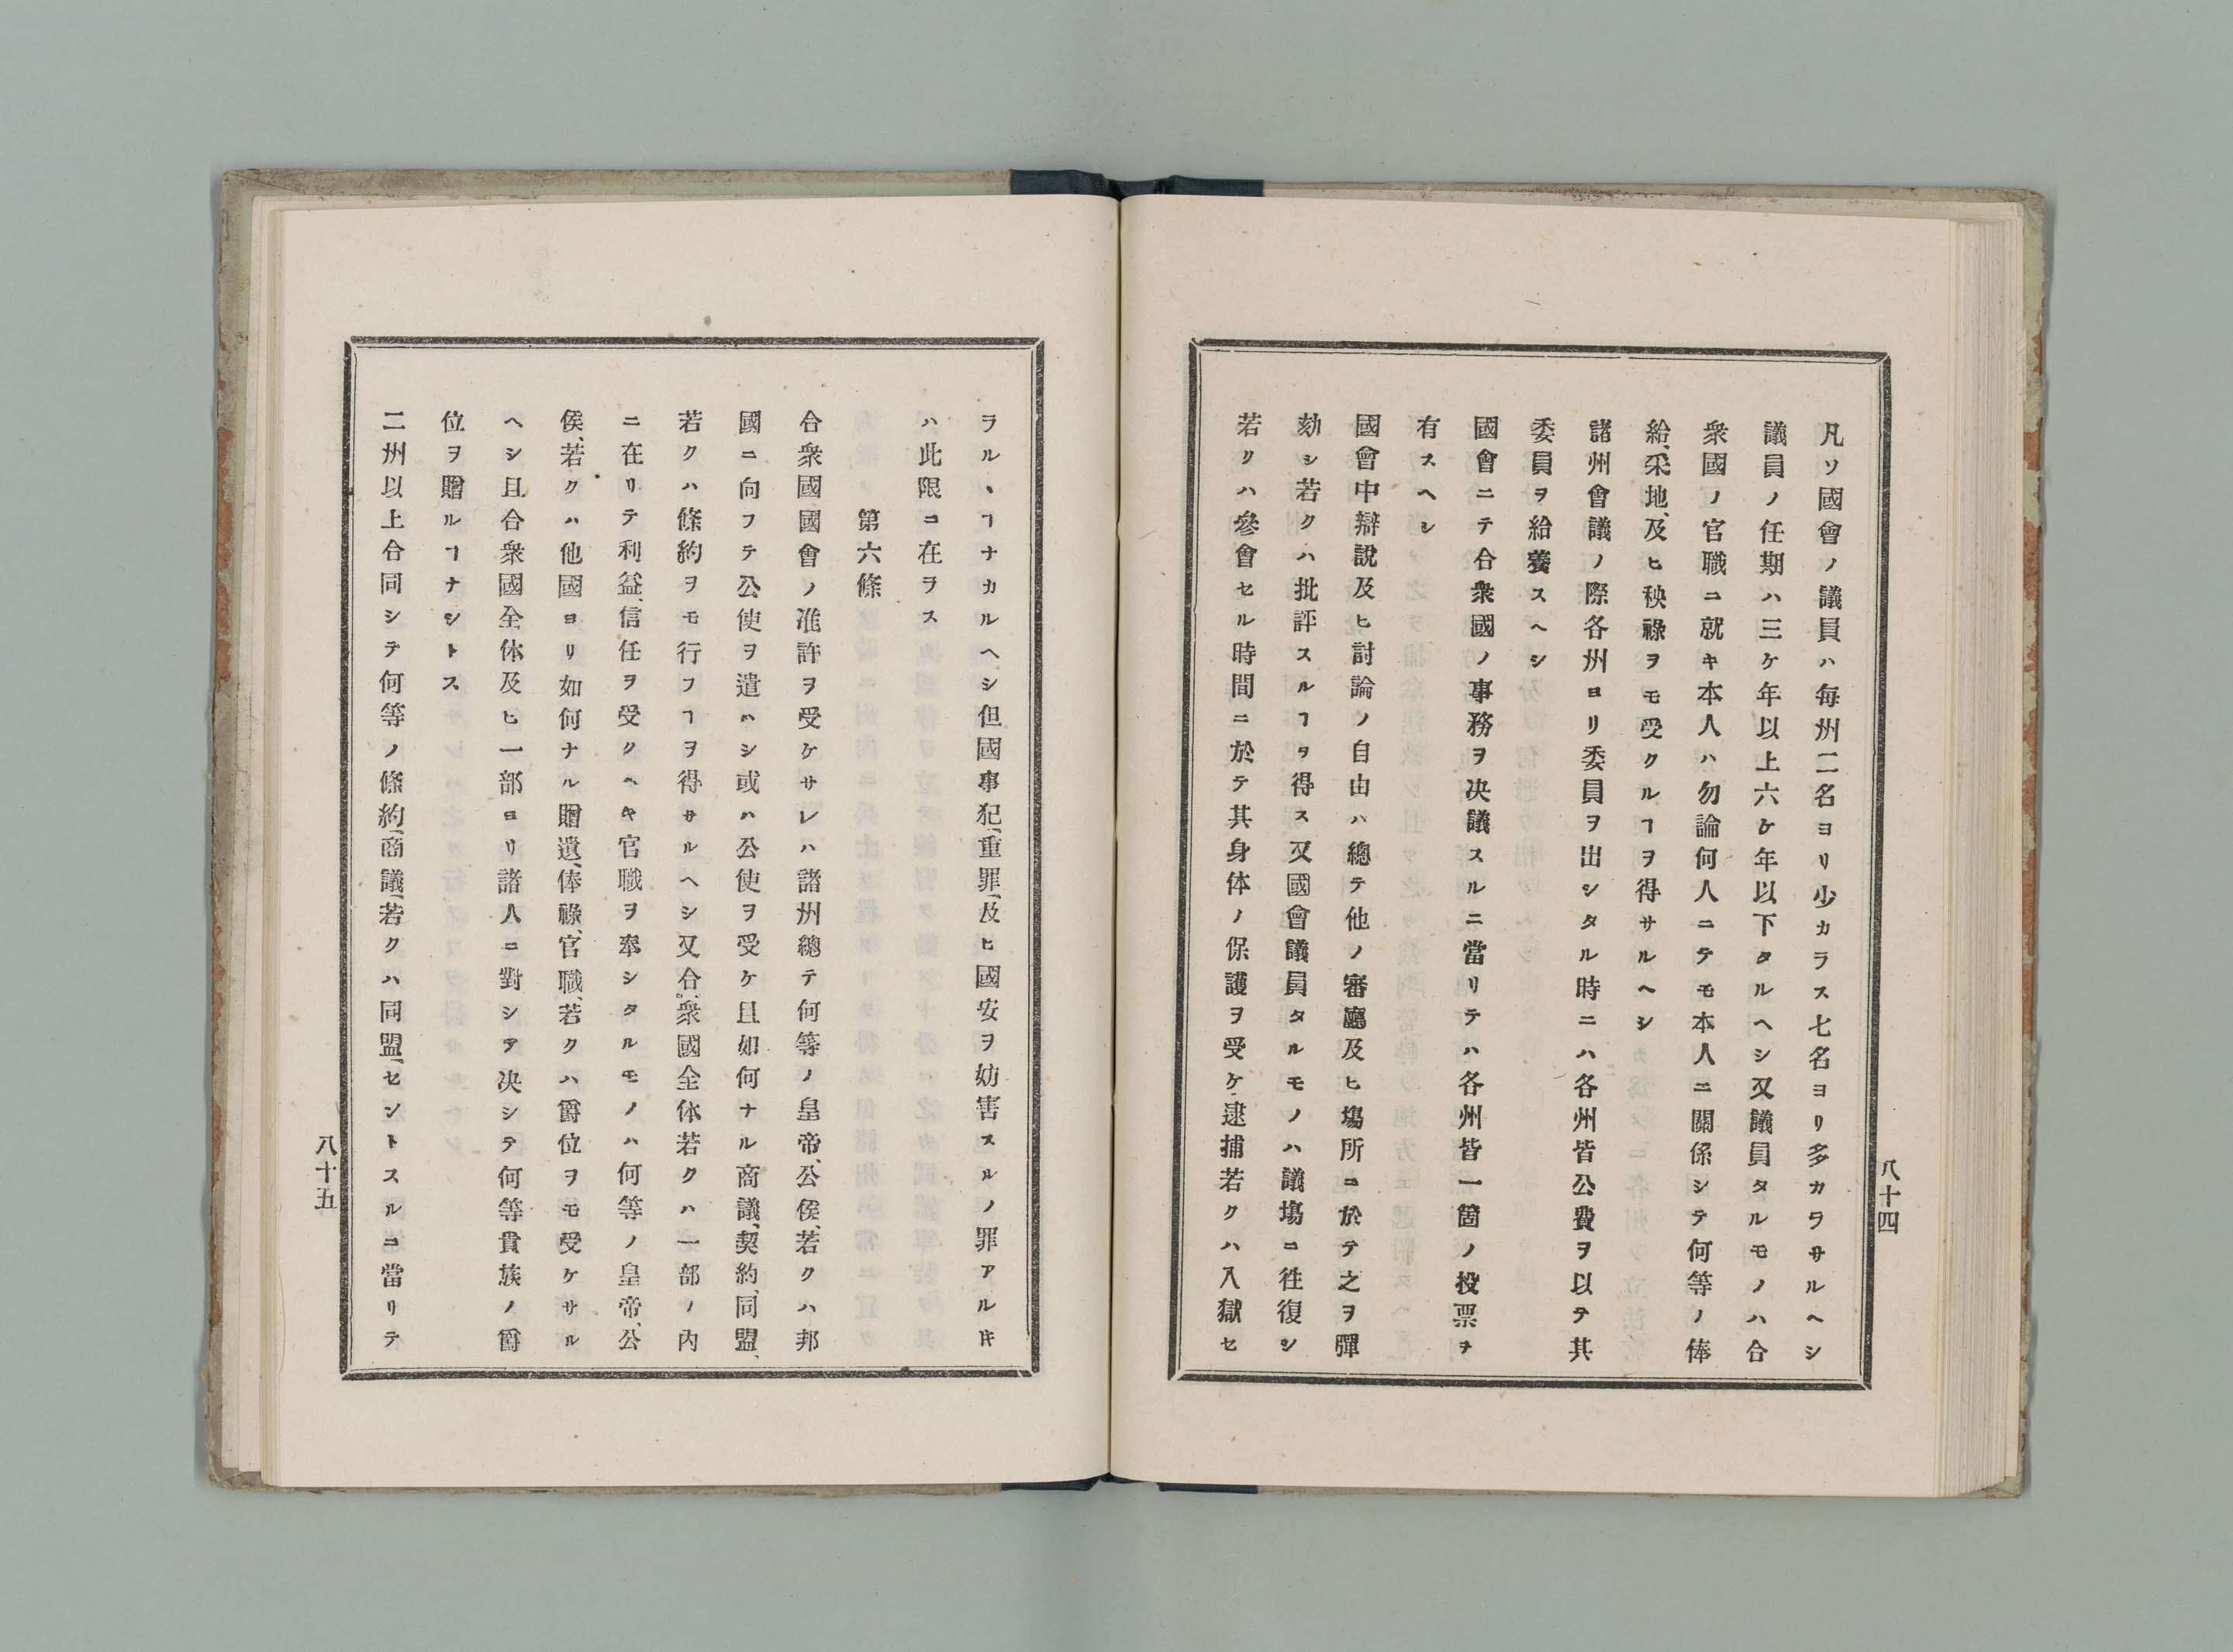 八十四
凡ソ國會ノ議員ハ毎州二名ヨリ少カラス七名ヨリ多カラサルヘシ
議員ノ任期ハ三ケ年以上六ケ年以下タルヘシ又議員タルモノハ合
衆國ノ官職ニ就キ本人ハ勿論何人ニテモ本人ニ關係シテ何等ノ俸
給、采地、及ヒ秧祿ヲモ受クルヿヲ得サルヘシ
諸州會議ノ際各州ヨリ委員ヲ出シタル時ニハ各州皆公費ヲ以テ其
委員ヲ給養スヘシ
國會ニテ合衆國ノ事務ヲ决議スルニ當リテハ各州皆一箇ノ投票ヲ
有スヘシ
國會中辯說及ヒ討論ノ自由ハ總テ他ノ審廳及ヒ塲所ニ於テ之ヲ彈
劾シ若クハ批評スルヿヲ得ス又國會議員タルモノハ議塲ニ徃復シ
若クハ參會セル時間ニ於テ其身体ノ保護ヲ受ケ逮捕若クハ入獄セ
ラルヽヿナカルヘシ但國事犯(重罪)及ヒ國安ヲ妨害スルノ罪アル片
ハ此限ニ在ラス
第六條
合衆國國會ノ准許ヲ受ケサレハ諸州總テ何等ノ皇帝、公侯、若クハ邦
國ニ向フテ公使ヲ遣ハシ或ハ公使ヲ受ケ且如何ナル商議、契約、同盟、
若クハ條約ヲモ行フヿヲ得サルヘシ又合衆國全体若クハ一部ノ內
ニ在リテ利益、信任ヲ受クヘキ官職ヲ奉シタルモノハ何等ノ皇帝、公
侯、若クハ他國ヨリ如何ナル贈遺、俸祿、官職、若クハ爵位ヲモ受ケサル
ヘシ且合衆國全体及ヒ一部ヨリ諸人ニ對シテ决シテ何等貴族ノ爵
位ヲ贈ルヿナシトス
二州以上合同シテ何等ノ條約(商議)若クハ同盟(セントスルニ當リテ
八十五